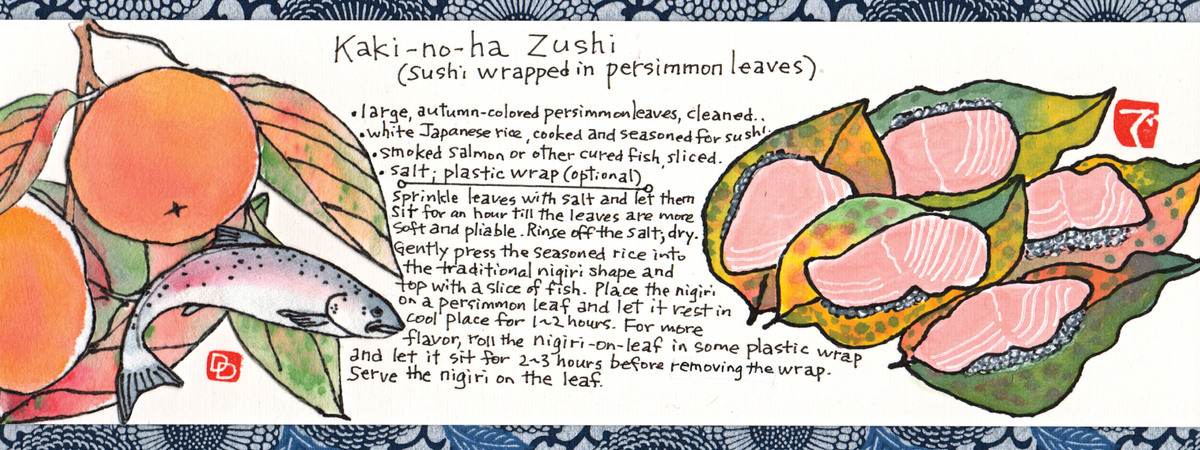 Kaki-no-ha Zushi
(sushi wrapped in persimmon leaves)
• large, autumn-colored persimmon leaves, cleaned..
• white Japanese rice, cooked and seasoned for sushi.
• smoked salmon or other cured fish, sliced.
• salt; plastic wrap (optional)
Sprinkle leaves with salt and let them
sit for an hour till the leaves are more
soft and pliable. Rinse off the salt; dry.
Gently press the seasoned rice into
the traditional nigiri shape and
top with a slice of fish. Place the nigiri
on a persimmon leaf and let it rest in
cool place for 1~2 hours. For more
flavor, roll the nigiri-on-leaf in some plastic wrap
and let it sit for 2~3 hours before removing the wrap.
Serve the nigiri on the leaf.
で
DD